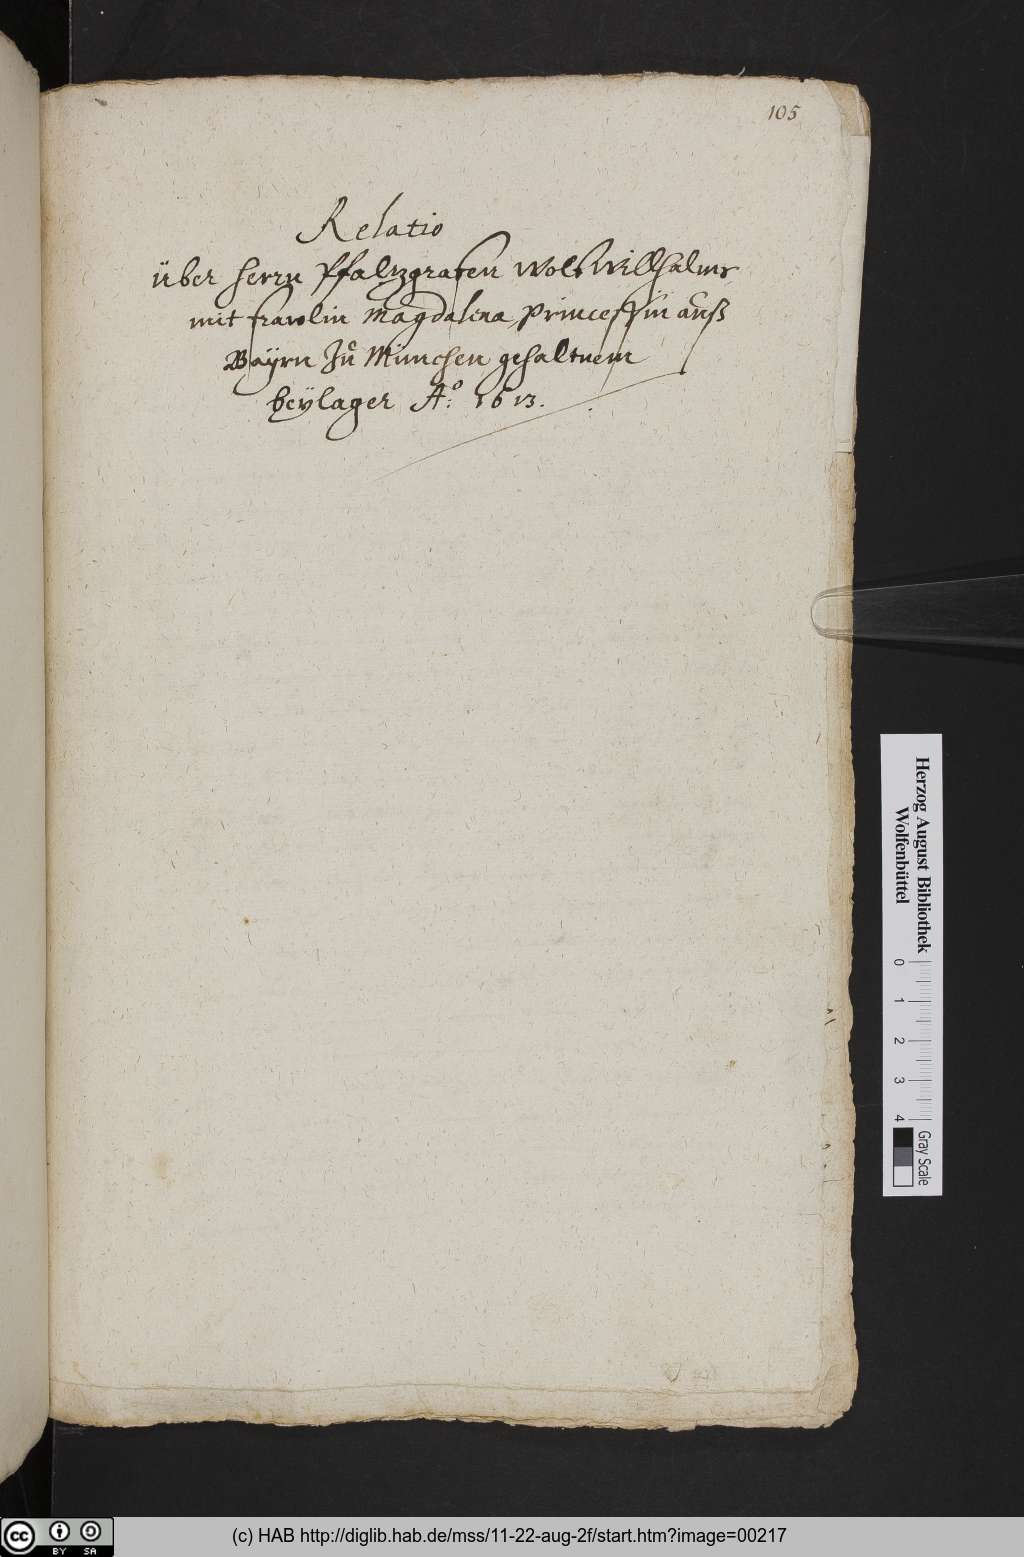 105
Relatio
über herrn Pfaltzgrafen Wolf Wilhalms
mit frawlin Magdalena, Princessin auß
Bayrn Zů München gehaltnem
beÿlager Aº: 1613.
Herzog August Bibliothek
Wolfenbüttel
0 1 2 3 4
Gray Scale
cc BY SA
(c) HAB http://diglib.hab.de/mss/11-22-aug-2f/start.htm?image=00217